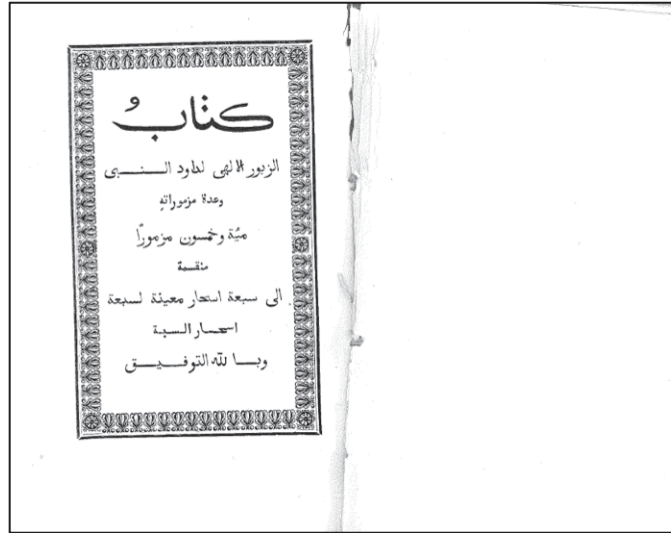 كتاب
الزبور الالهى لداود النبى
وعدة مزموراته
مئة وخمسون مزمورًا
منقسمة
الى سبعة اسحار معينة لسبعة
اسحار السبة
وبالله التوفيق